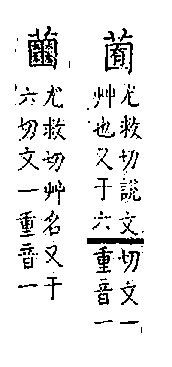 尤救切說文
艸也又于六
切文一
重音一
尤救切艸名又于
六切文一重音一